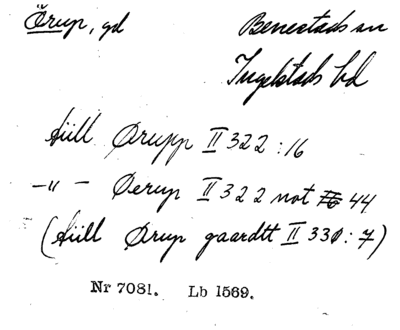 Örup, gd Benestads sn
Ingelstads hd
Aüll Ørupp II 322:16
–"– Øerup II 322 not 44
(Aüll Ørup gaardtt II 330:7)
Nr 7081. Lb 1569.